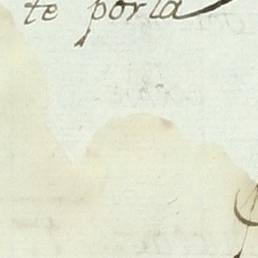 te por la